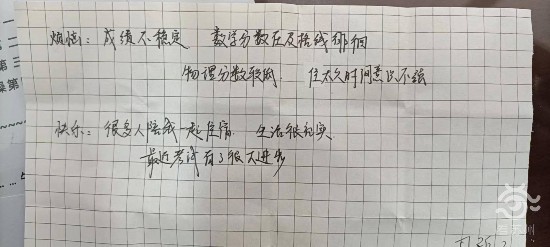 一
二
第三
第
烦恼：成绩不稳定 数学分数在及格线徘徊
物理分数较低 时间意识不强
快乐：很多人陪我一起住宿 生活很充实
最近考试有了很大进步